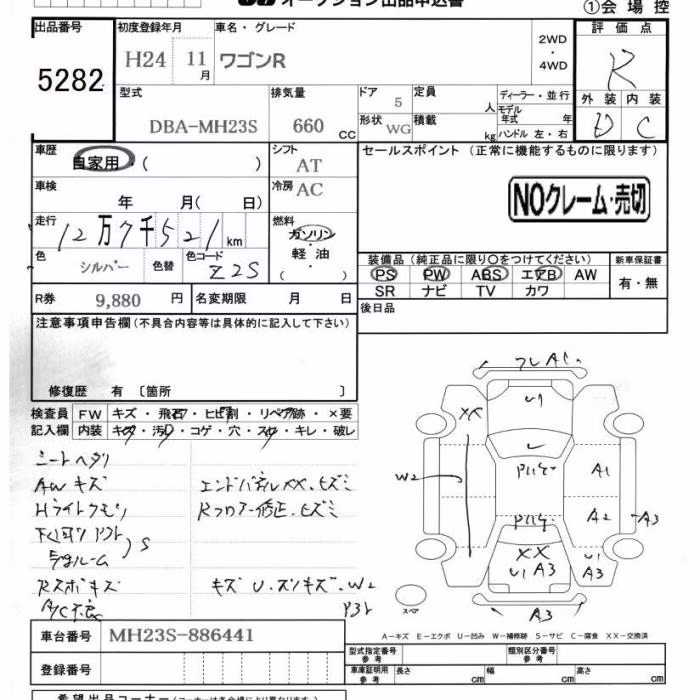 オークション出品申込書
①会場控
出品番号
5282
初度登録年月
H24 11月
車名・グレード
ワゴンR
2WD
・
4WD
評価点
R
外装 内装
D C
型式
DBA-MH23S
排気量
660 CC
ドア
5
形状
WG
定員
人
積載
kg
ディーラー・並行
モデル年式 年
ハンドル 左・右
車歴
自家用・( )
シフト
AT
セールスポイント (正常に機能するものに限ります)
車検
年 月( 日)
冷房
AC
NOクレーム・売切
走行
12万7千521km
燃料
ガソリン
・
軽油
( )
色
シルバー
色替
色コード
Z2S
装備品(純正品に限り〇をつけてください)
PS PW ABS エアB AW
SR ナビ TV カワ
新車保証書
有・無
R券 9,880 円
名変期限 月 日
後日品
注意事項申告欄(不具合内容等は具体的に記入して下さい)
修復歴 有 〔箇所 〕
検査員記入欄
FW キズ・飛石・ヒビ割・リペア跡・×要
内装 キズ・汚レ・コゲ・穴・スレ・キレ・破レ
シートヘタリ
AWキズ
Hライトクモリ
エンドパネルXX.ヒズミ
Rフロアー修正.ヒズミ
S
Rスポキズ
A/C不良
キズ U.スリキズ.W2
フレA1
U1
XX
W2
A1
A2
A3
XX
U1 A3
U1
A3
A3
スペア
A-キズ E-エクボ U-凹み W-補修跡 S-サビ C-腐食 XX-交換済
車台番号 MH23S-886441
登録番号
型式指定番号 参考
類別区分番号 参考
車庫証明用 参考
長さ cm
幅 cm
高さ cm
希望出品コーナー